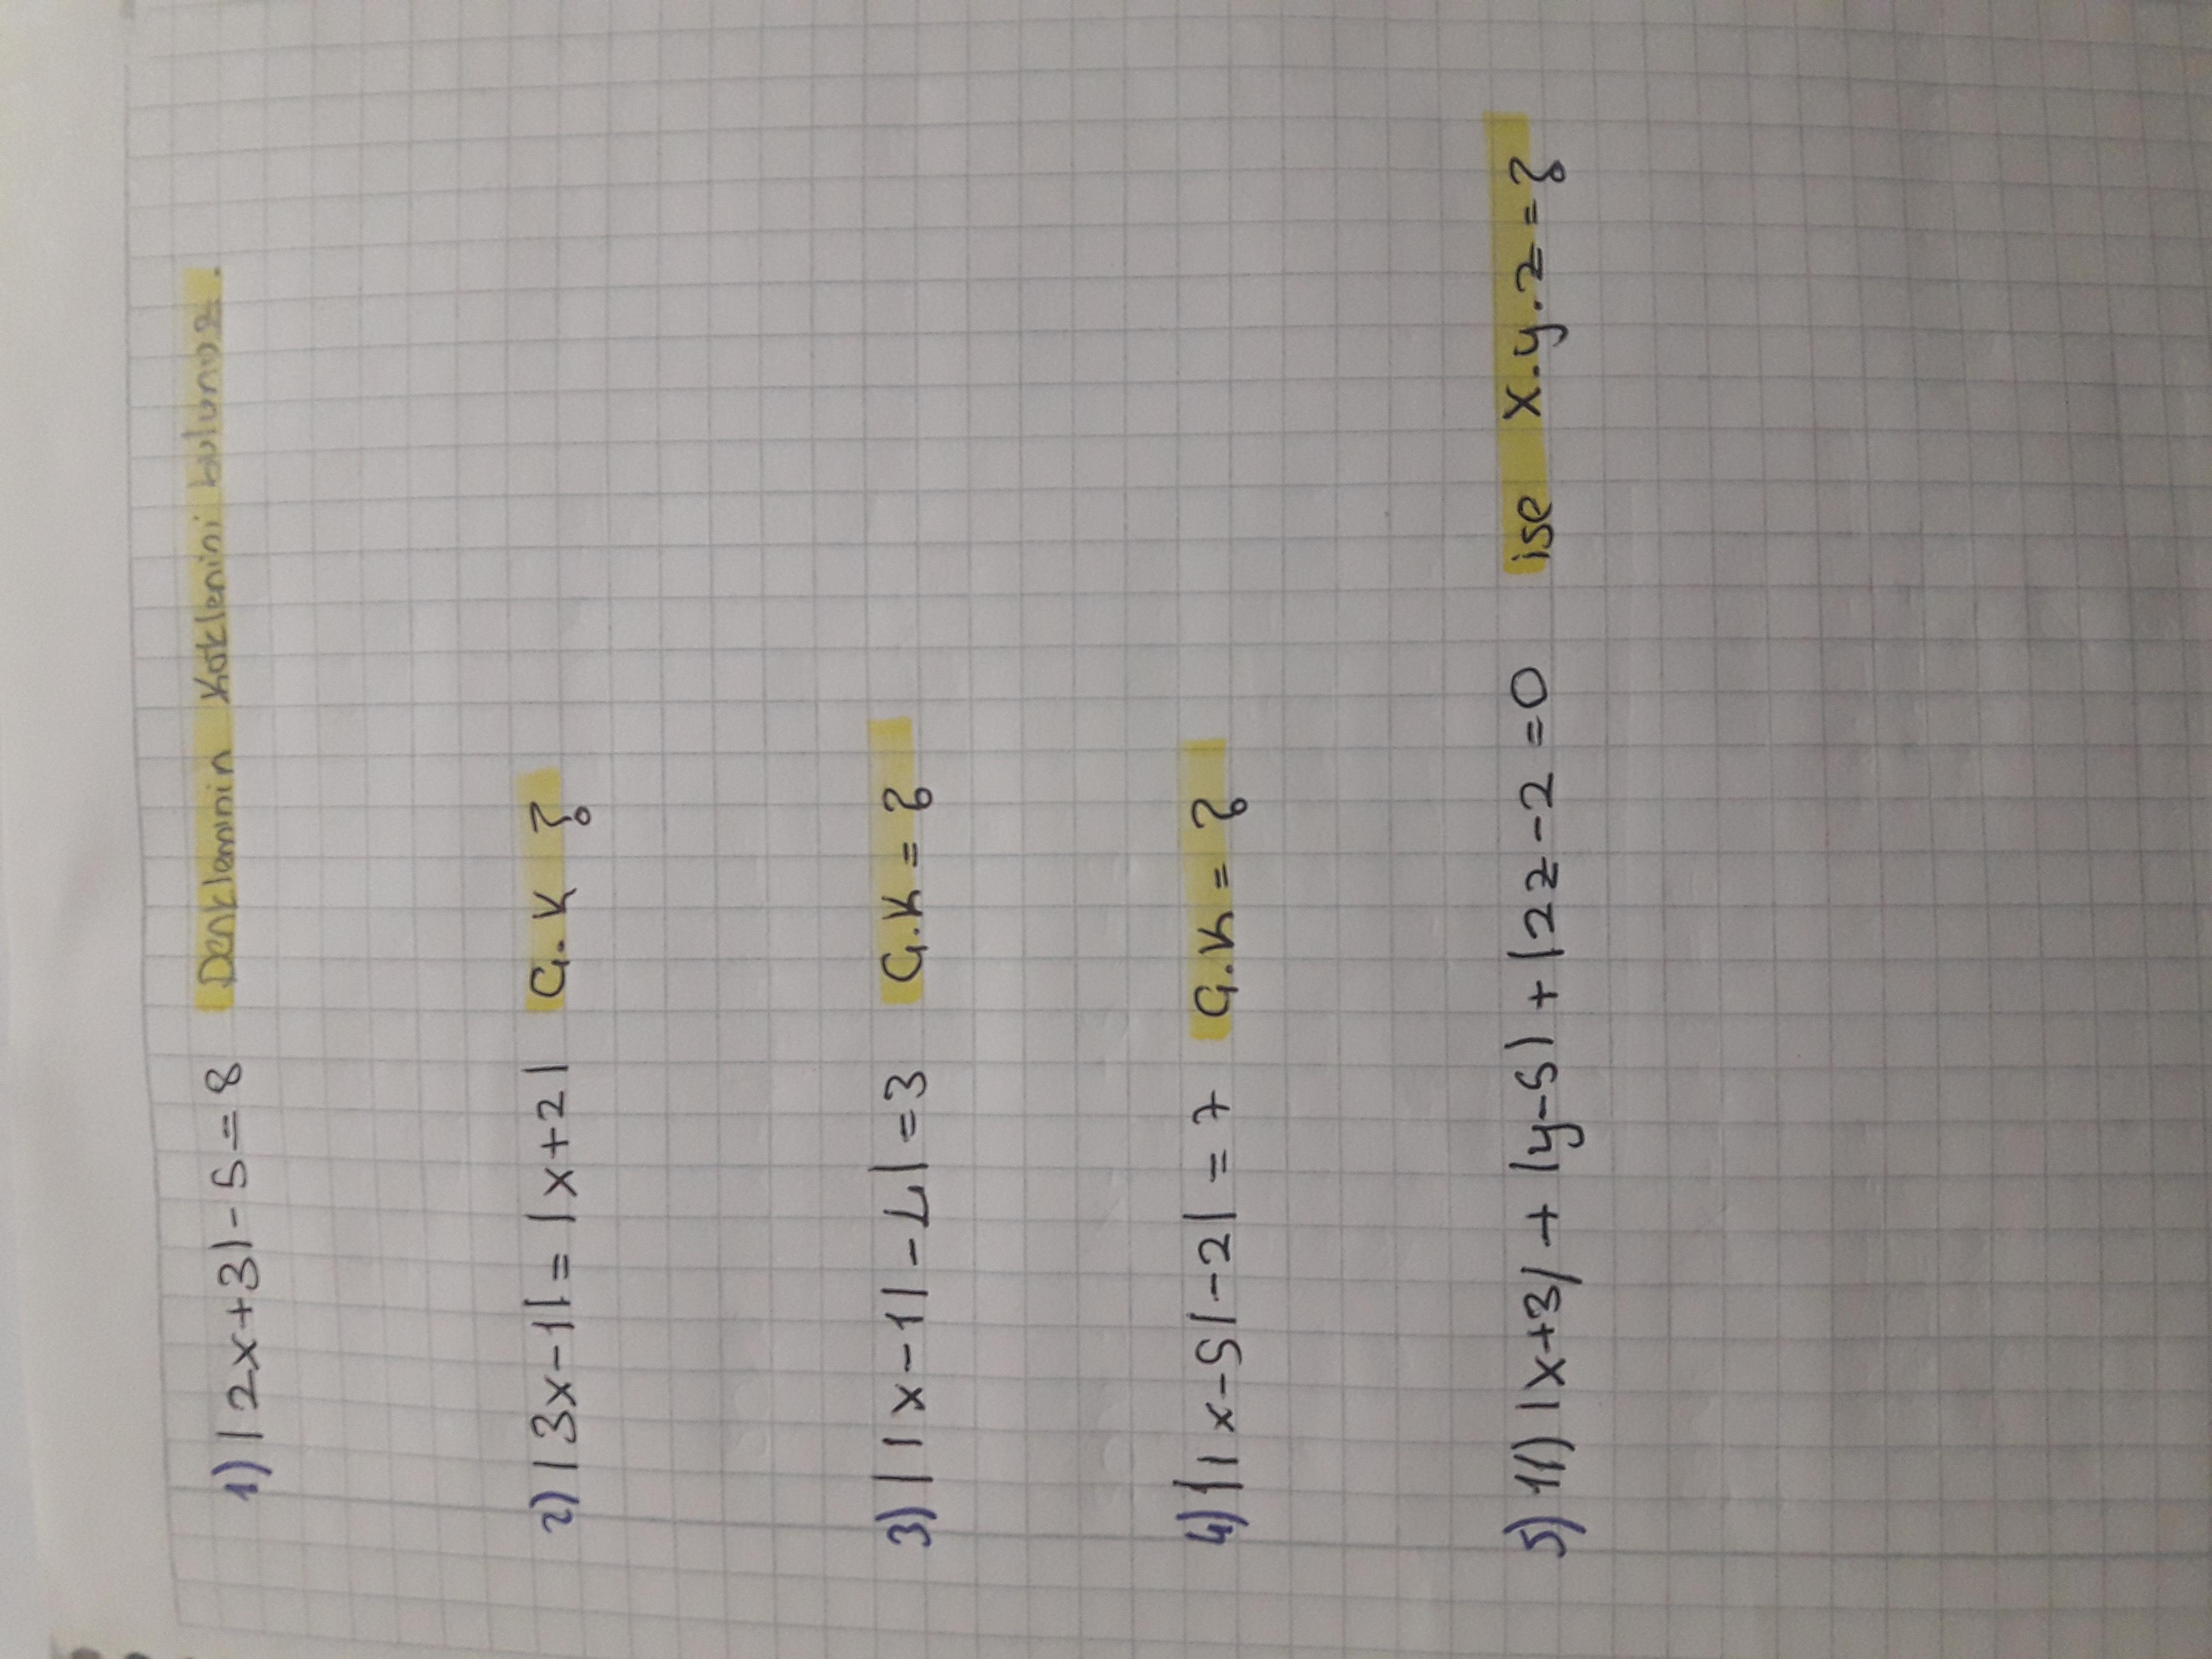 1) |2x+3|-5=8 Denkleminin Köklerini bulunuz.
2) |3x-1|=|x+2| Ç.K ?
3) ||x-1|-7|=3 Ç.K=?
4) ||x-5|-2|=7 Ç.K=?
5) 11) |x+3|+|y-5|+|2z-2=0 ise x.y.z=?